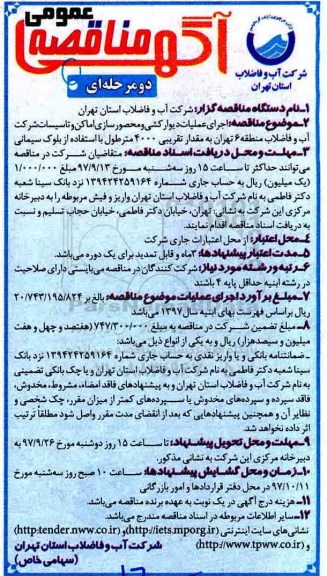 آگهی مناقصه عمومی
دو مرحله‌ای
شرکت آب و فاضلاب
استان تهران
۱-نام دستگاه مناقصه گزار: شرکت آب و فاضلاب استان تهران
۲-موضوع مناقصه: اجرای عملیات دیوارکشی و محصورسازی اماکن و تاسیسات شرکت
آب و فاضلاب منطقه ۶ تهران به مقدار تقریبی ۴۰۰۰ مترطول با استفاده از بلوک سیمانی
۳-مهلت و محل دریافت اسناد مناقصه: متقاضیان شرکت در مناقصه
می‌توانند حداکثر تا ساعت ۱۵ روز سه‌شنبه مورخ ۹۷/۹/۱۳ مبلغ ۱/۰۰۰/۰۰۰
(یک میلیون) ریال به حساب جاری شماره ۱۳۹۴۲۴۲۵۹۱۶۴ نزد بانک سینا شعبه
دکتر فاطمی به نام شرکت آب و فاضلاب استان تهران واریز و فیش مربوطه را به دبیرخانه
مرکزی این شرکت به نشانی: تهران، خیابان دکتر فاطمی، خیابان حجاب تسلیم و نسبت
به دریافت اسناد مناقصه اقدام نمایند.
۴-محل اعتبار: از محل اعتبارات جاری شرکت
۵-مدت اعتبار پیشنهادها: ۳ماه و قابل تمدید برای یک دوره می‌باشد.
۶-رتبه و رشته مورد نیاز: شرکت کنندگان در مناقصه می‌بایستی دارای صلاحیت
در رشته ابنیه حداقل پایه ۴ باشند
۷-مبلغ برآورد اجرای عملیات موضوع مناقصه: بالغ بر ۲۰/۷۴۳/۱۹۵/۸۲۴
ریال براساس فهرست بهای ابنیه سال ۱۳۹۷ می‌باشد
۸-مبلغ تضمین شرکت در مناقصه به مبلغ ۷۴۷/۳۰۰/۰۰۰ (هفتصد و چهل و هفت
میلیون و سیصدهزار) ریال و به یکی از انواع ذیل می‌باشد:
-ضمانتنامه بانکی و یا واریز نقدی به حساب جاری شماره ۱۳۹۴۲۴۲۵۹۱۶۴ نزد بانک
سینا شعبه دکتر فاطمی به نام شرکت آب و فاضلاب استان تهران و یا چک بانکی تضمینی
به نام شرکت آب و فاضلاب استان تهران و به پیشنهادهای فاقد امضاء، مشروط، مخدوش،
فاقد سپرده و سپرده‌های مخدوش یا سپرده‌های کمتر از میزان مقرر، چک شخصی و
نظایر آن و همچنین پیشنهادهایی که بعد از انقضای مدت مقرر واصل شود مطلقاً ترتیب
اثر داده نخواهد شد.
۹-مهلت و محل تحویل پیشنهاد: تا ساعت ۱۵ روز دوشنبه مورخ ۹۷/۹/۲۶ به
دبیرخانه مرکزی این شرکت به نشانی مذکور.
۱۰-زمان و محل گشایش پیشنهادها: ساعت ۱۰ صبح روز سه‌شنبه مورخ
۹۷/۱۰/۱۱ در محل دفتر قراردادها و امور بازرگانی
۱۱-هزینه درج آگهی در یک نوبت به عهده برنده مناقصه می‌باشد.
۱۲-سایر اطلاعات مربوطه در اسناد مناقصه مندرج می‌باشد.
نشانی‌های سایت اینترنتی (http://iets.mporg.ir) و (http:tender.nww.co.ir)
و (http://www.tpww.co.ir)
شرکت آب و فاضلاب استان تهران
(سهامی خاص)